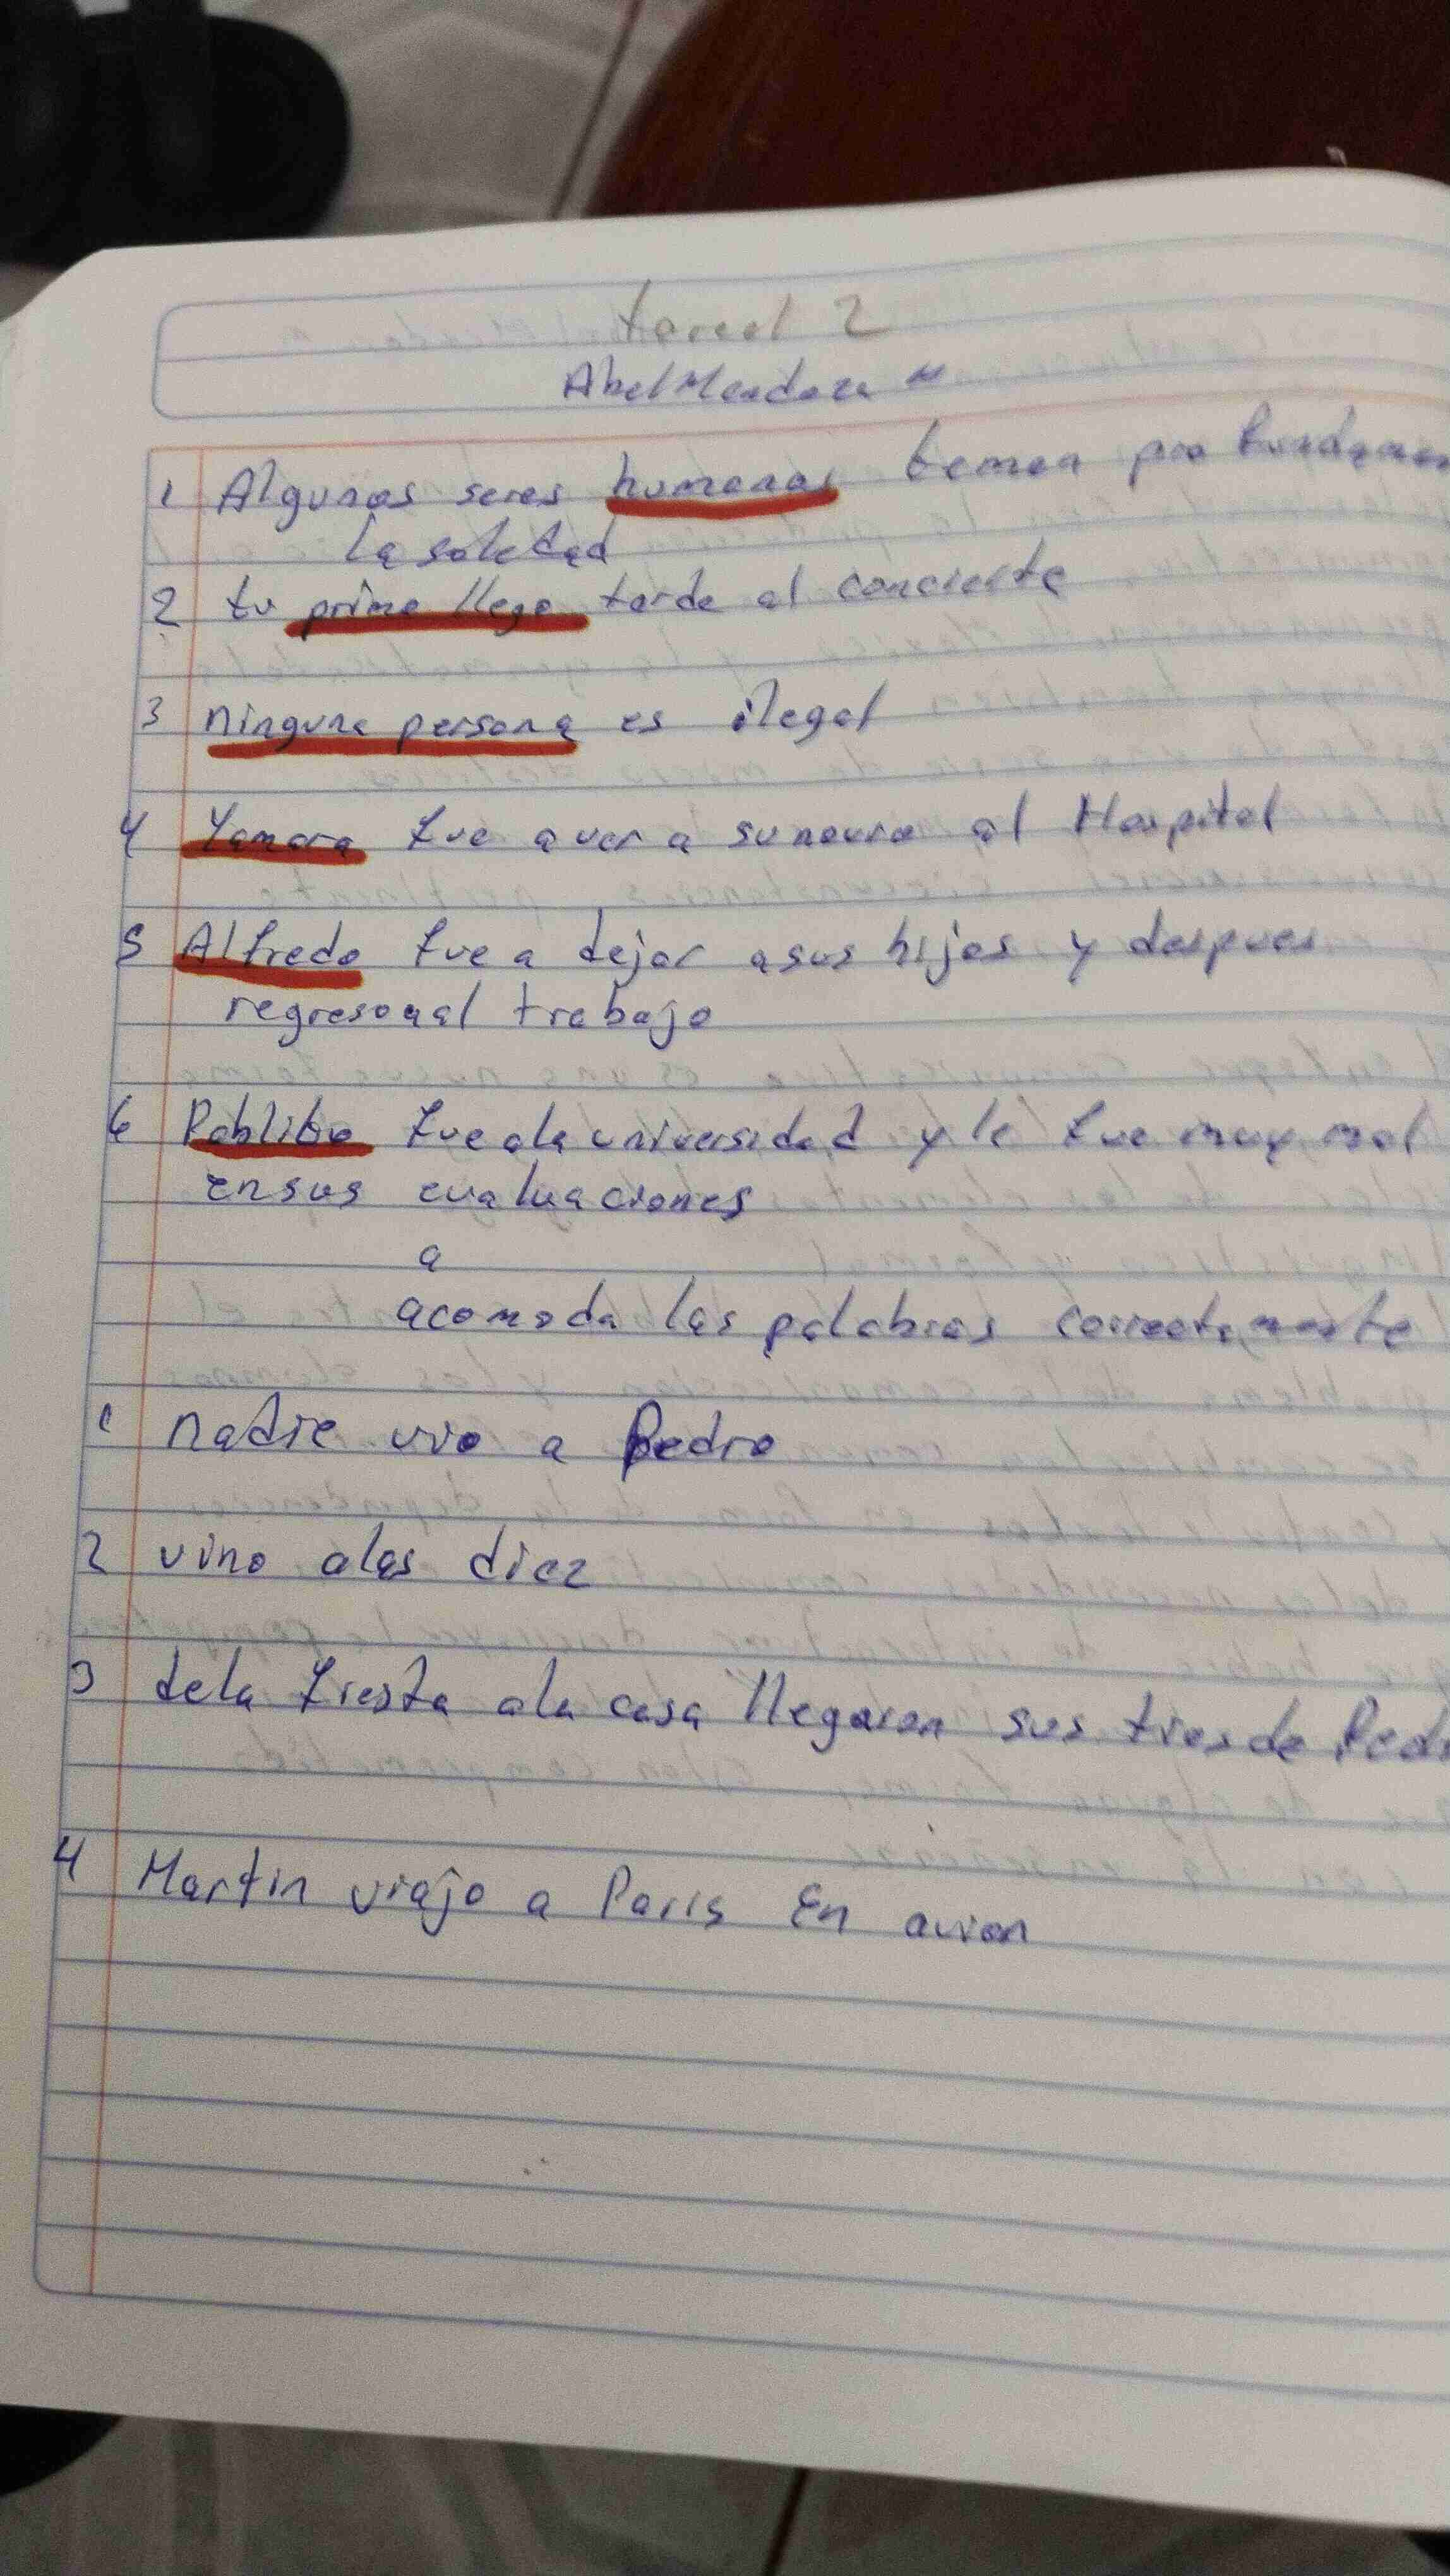 tarea 2
Abel Mendoza M
1 Algunos seres humanos temen profundamen
la soledad
2 tu primo llego tarde al concierto
3 ninguna persona es ilegal
4 Yamara fue a ver a su novio al Hospital
5 Alfredo fue a dejar asus hijos y despues
regresoaal trabajo
6 Pablito fue ala universidad y le fue muy mal
ensus evaluaciones
a
acomoda las palabras correctamente
1 nadie vio a Pedro
2 vino alas diez
3 dela fiesta ala casa llegaron sus tios de Ped
4 Martin viajo a Paris En avion